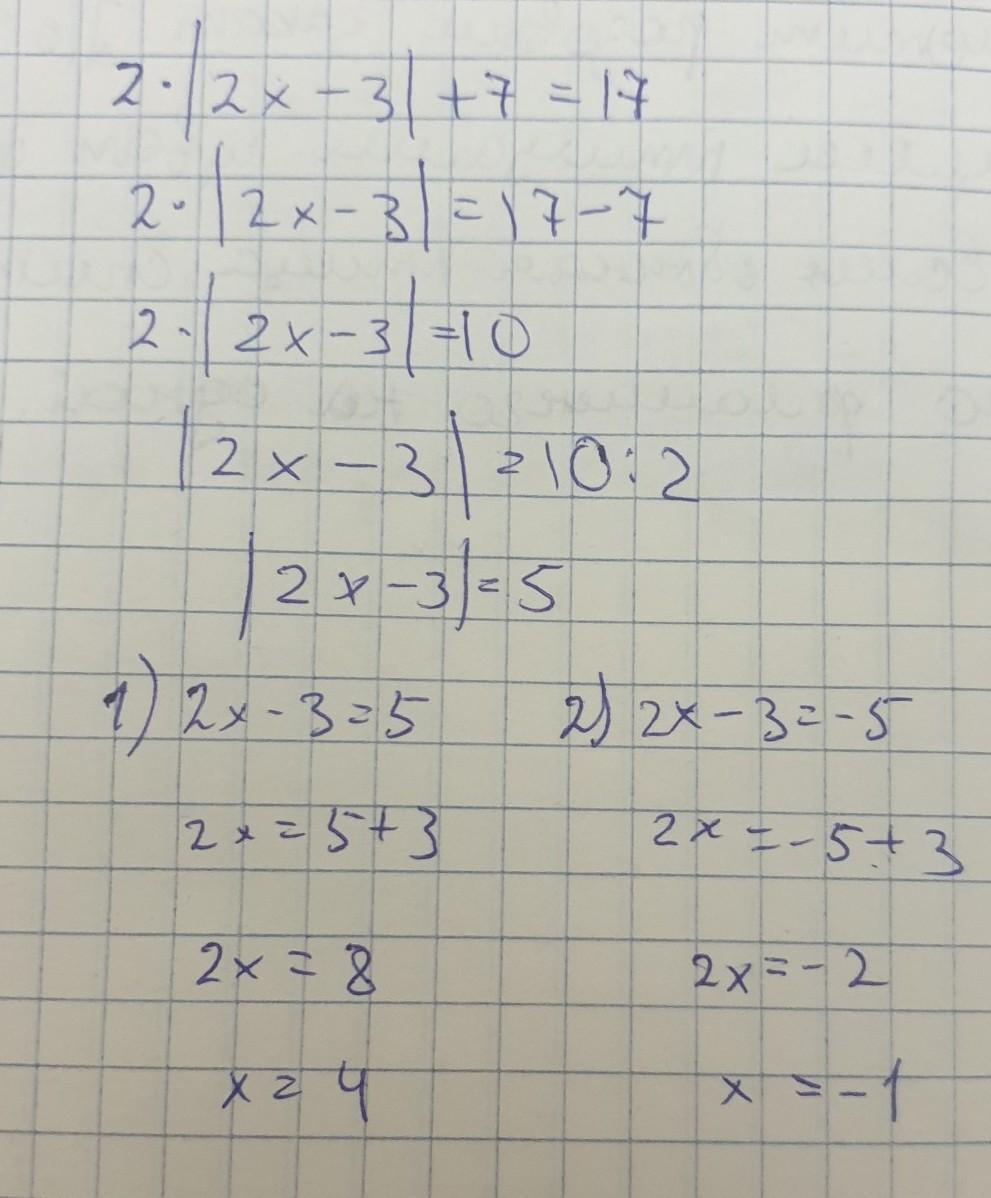 2·|2x-3|+7=17
2·|2x-3|=17-7
2·|2x-3|=10
|2x-3|=10:2
|2x-3|=5
1) 2x-3=5 2) 2x-3=-5
2x=5+3 2x=-5+3
2x=8 2x=-2
x=4 x=-1